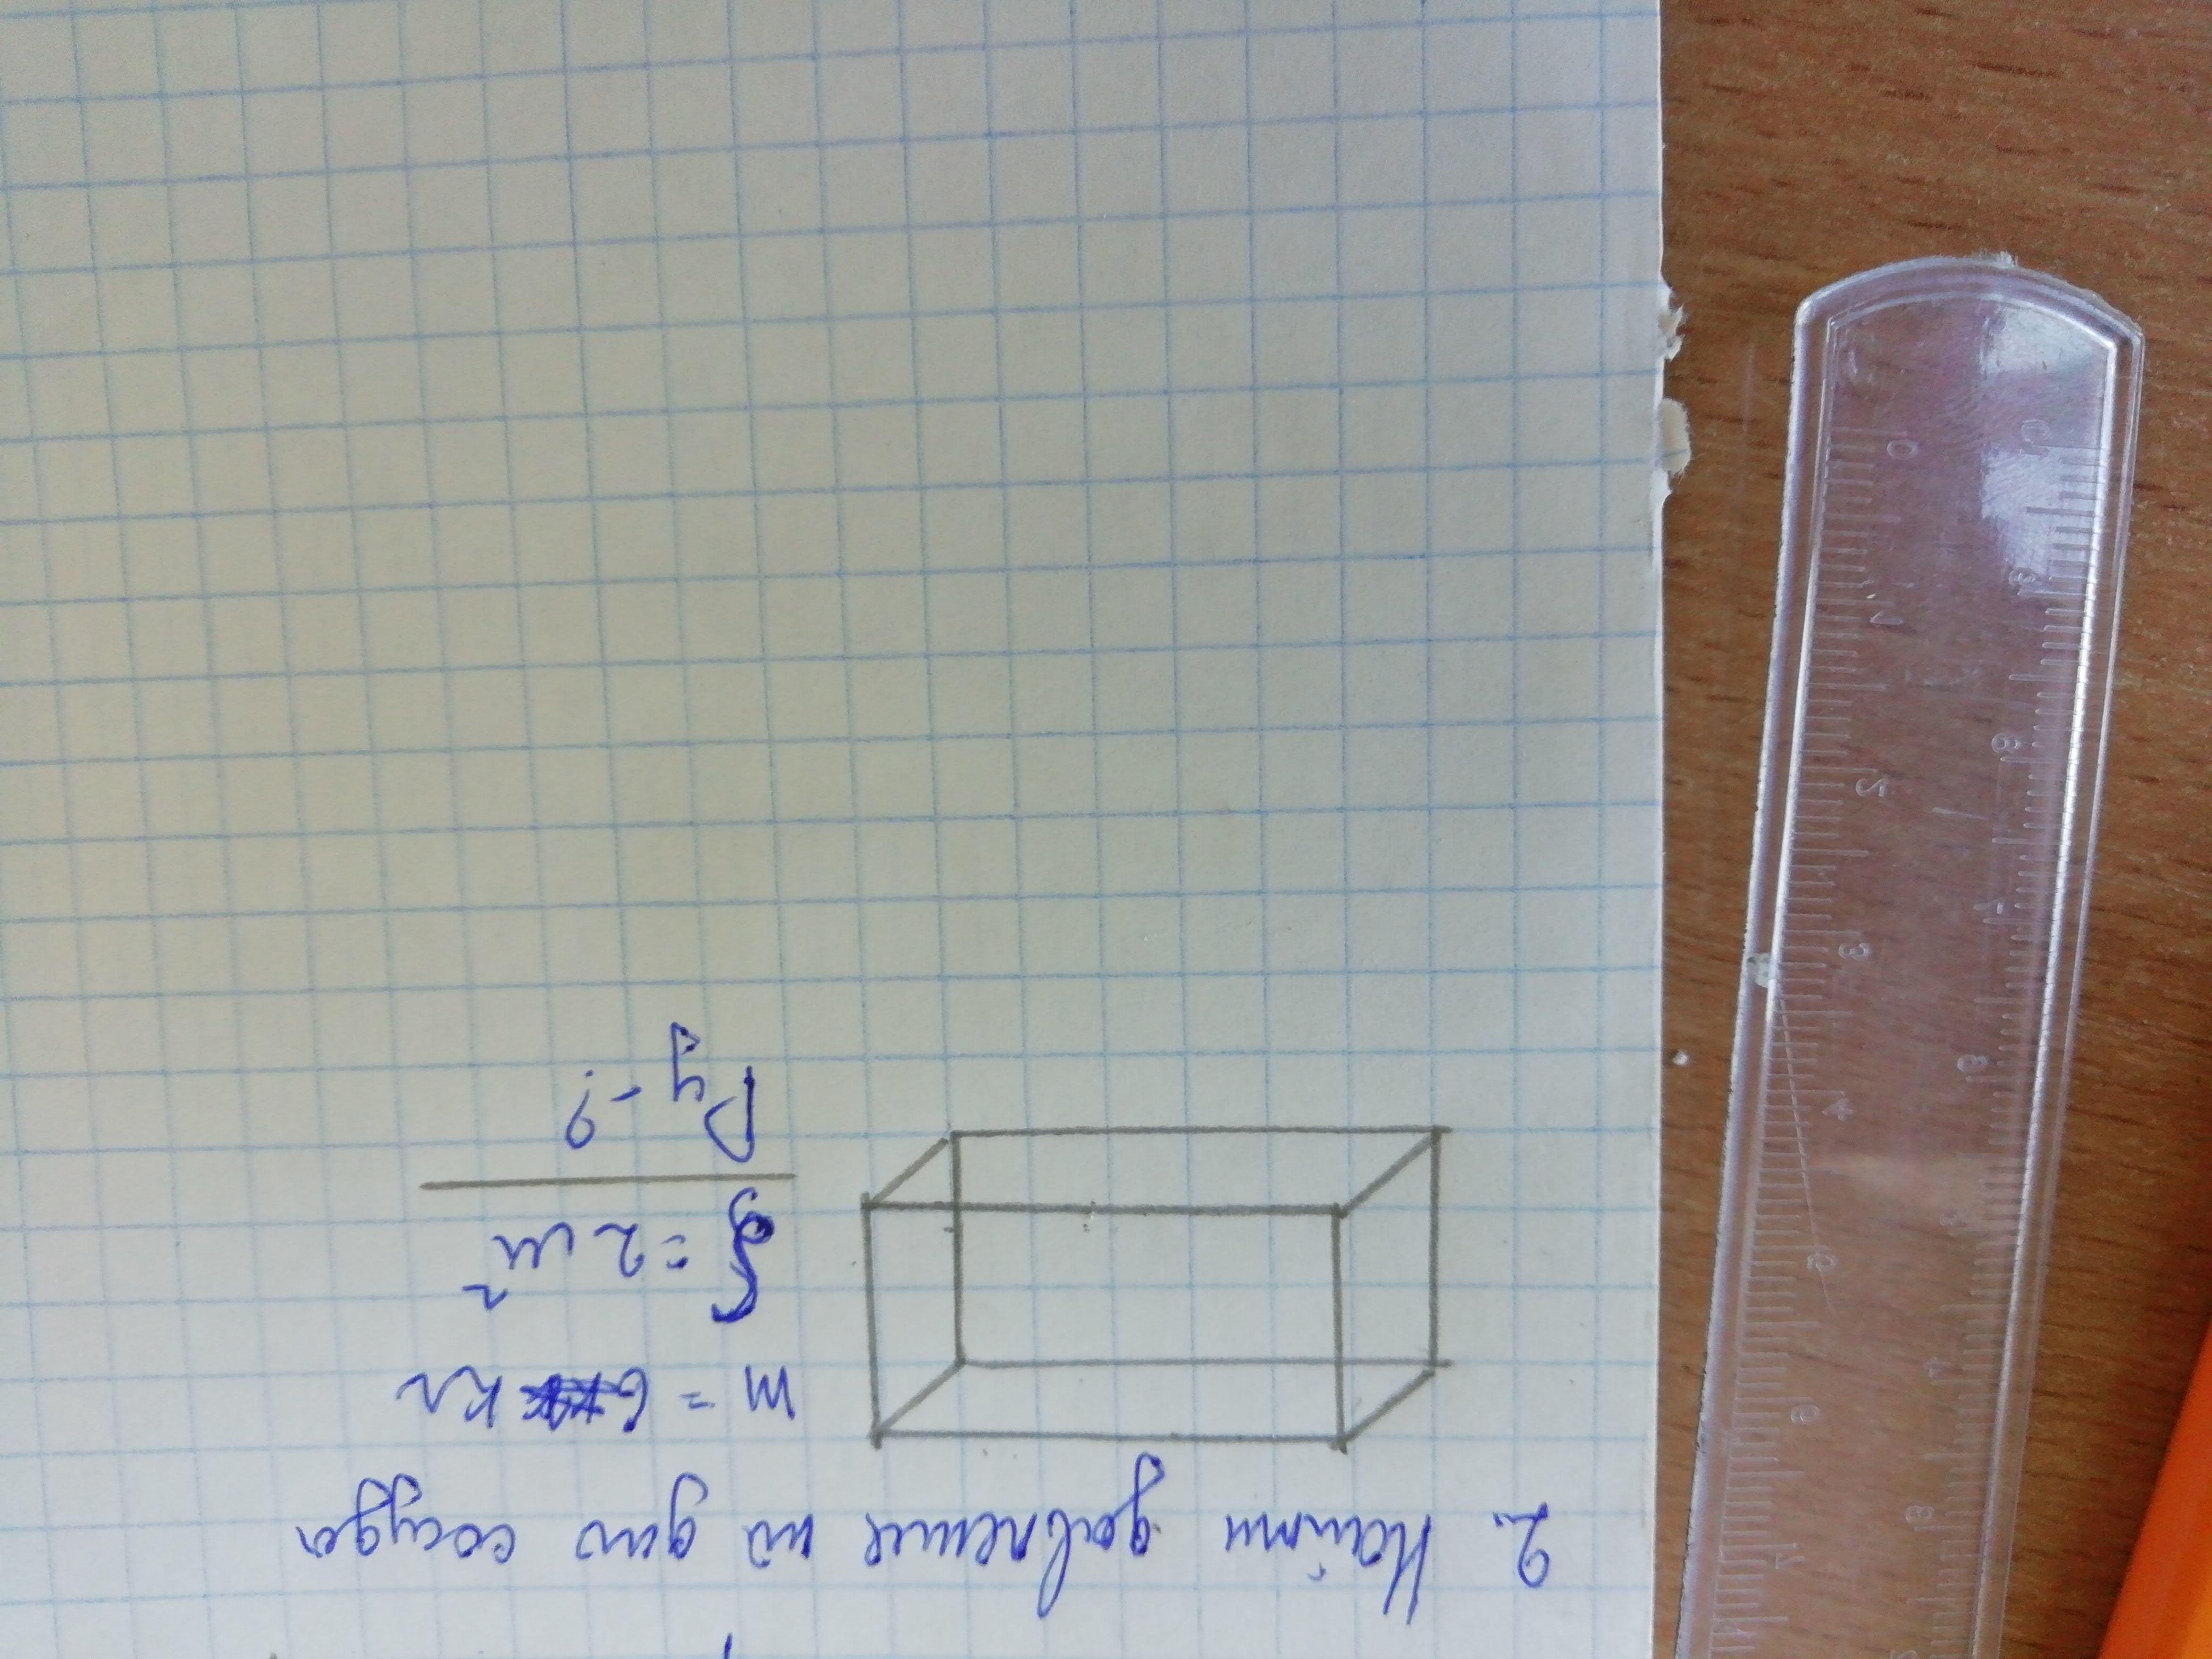 2. Найти давление на дно сосуда
m = 6 кг
S = 2 м²
Pд - ?
0
1
2
3
4
5
6
7